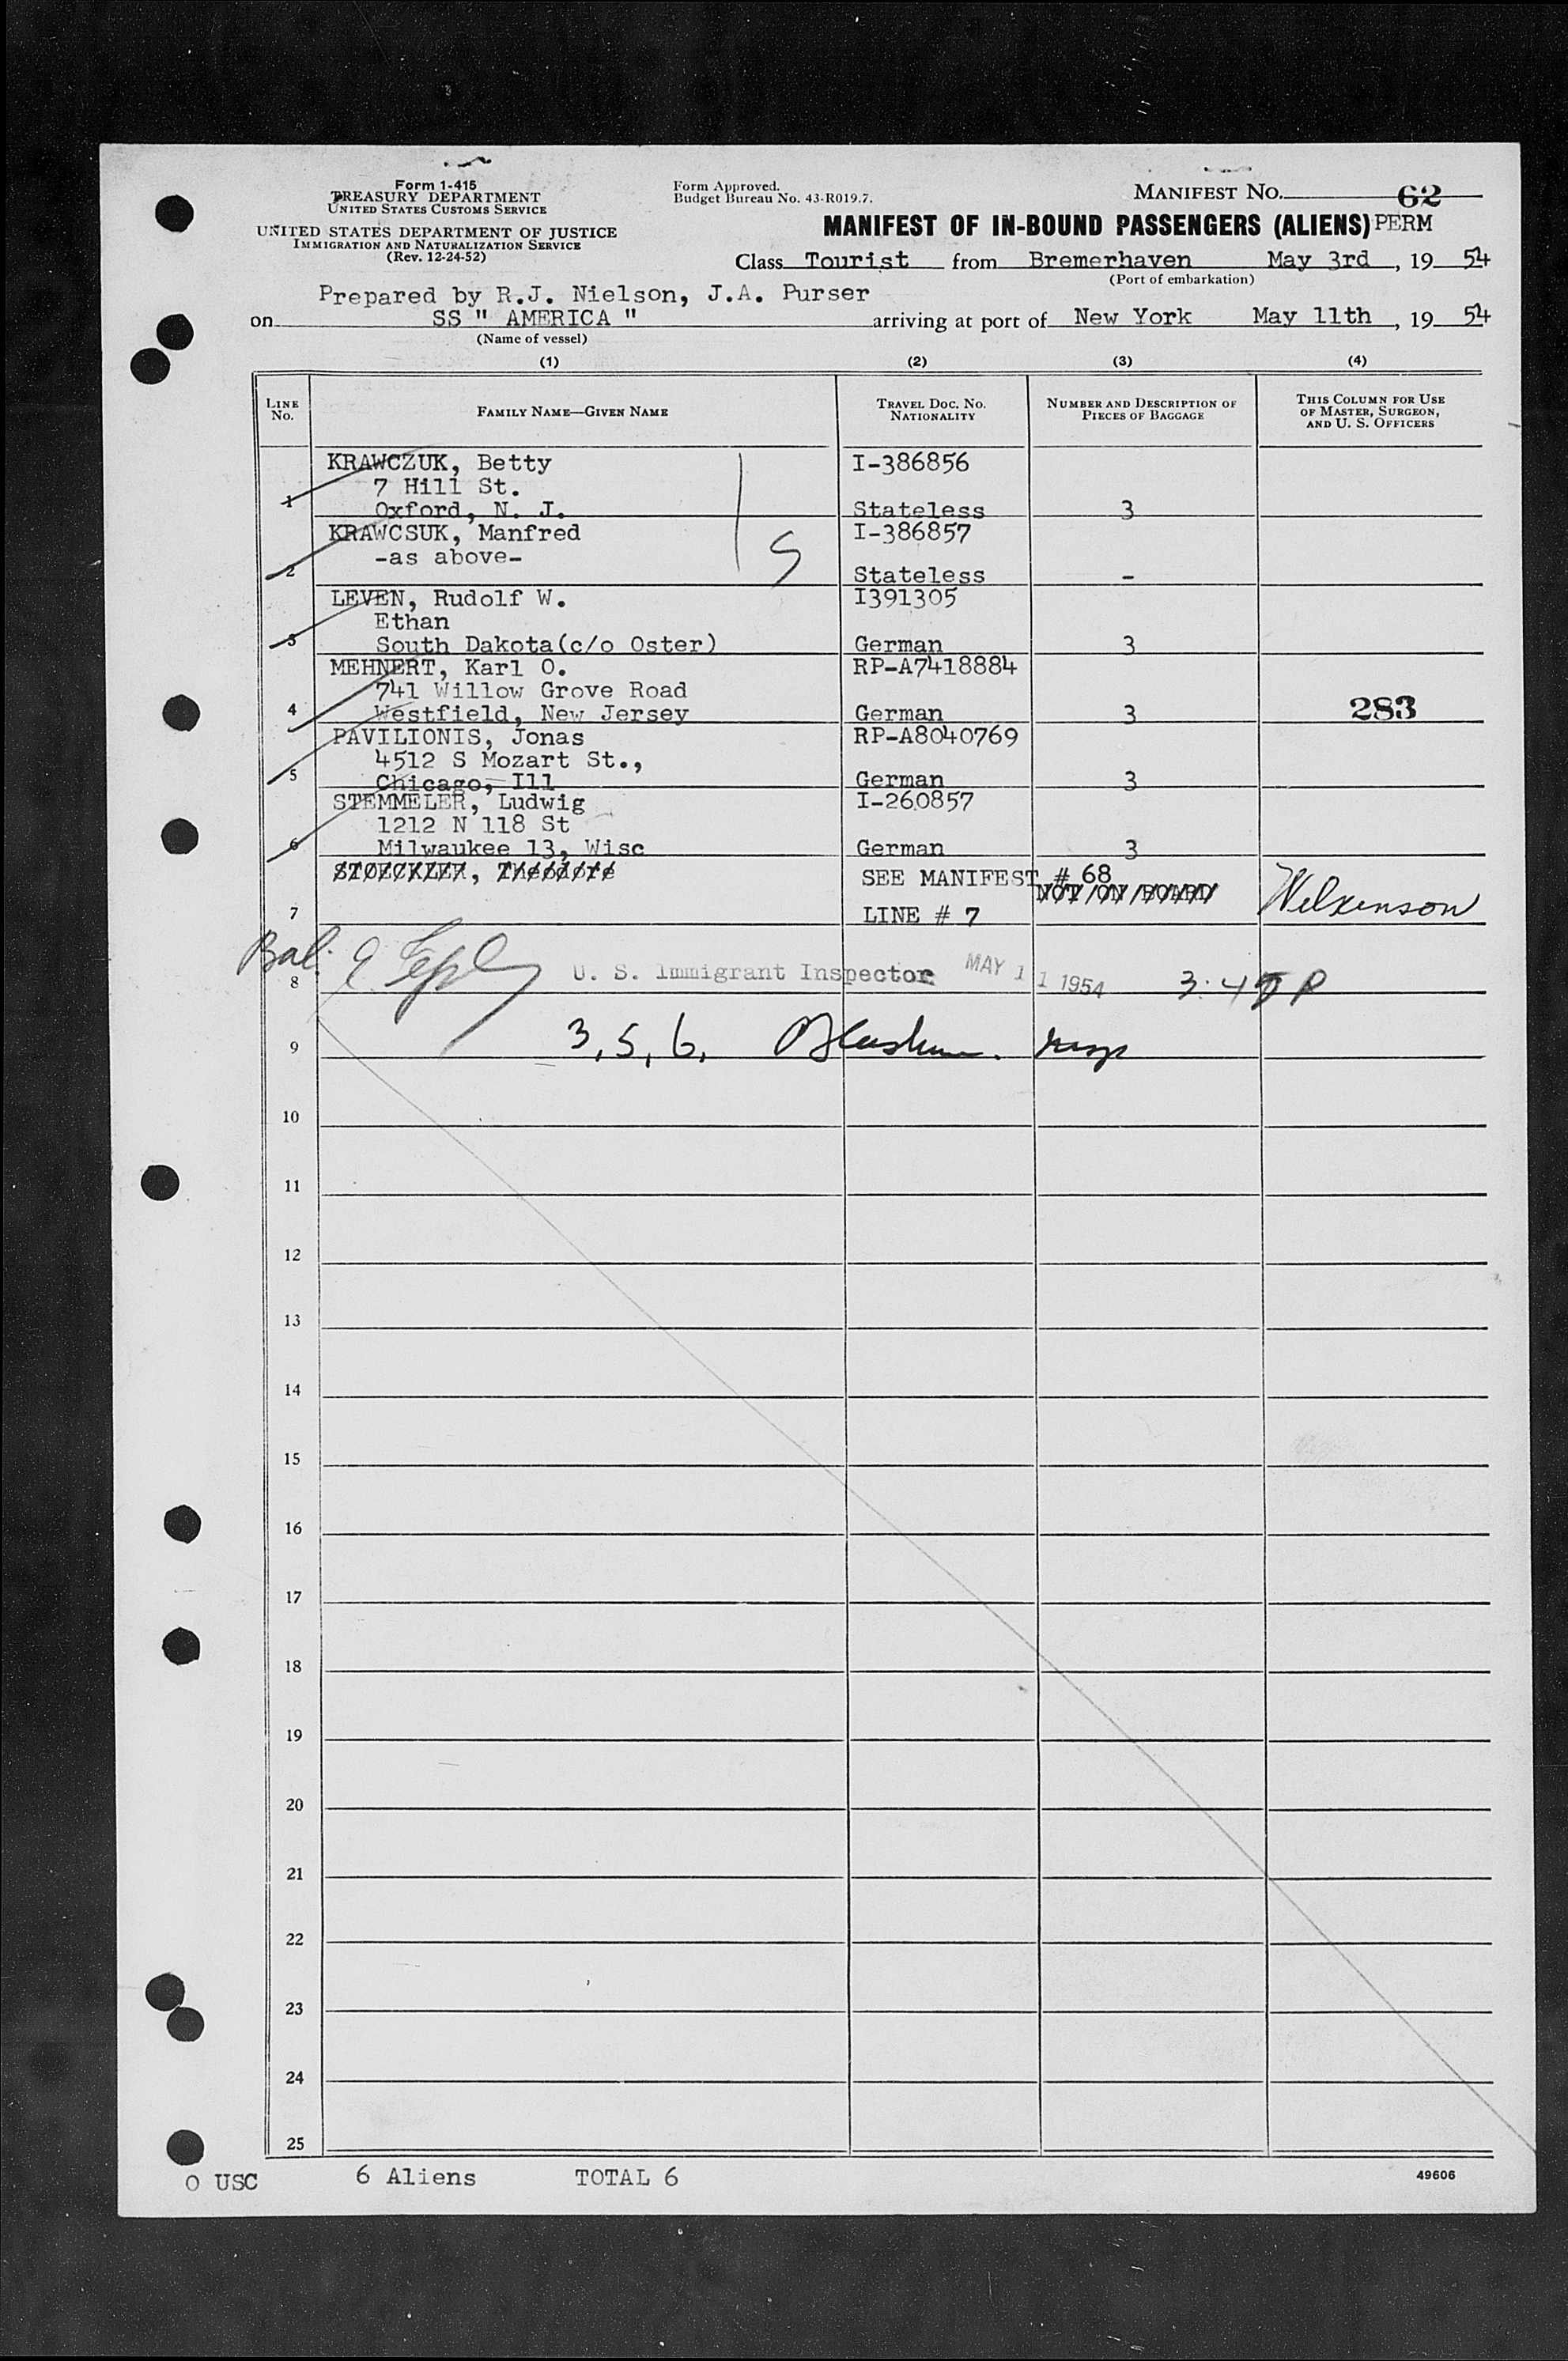 Form 1-415
TREASURY DEPARTMENT
UNITED STATES CUSTOMS SERVICE
UNITED STATES DEPARTMENT OF JUSTICE
IMMIGRATION AND NATURALIZATION SERVICE
(Rev. 12-24-52)
Form Approved.
Budget Bureau No. 43-R019.7.
MANIFEST NO. 62
MANIFEST OF IN-BOUND PASSENGERS (ALIENS) PERM
Class Tourist from Bremerhaven May 3rd, 19 54
(Port of embarkation)
Prepared by R.J. Nielson, J.A. Purser
on SS " AMERICA " arriving at port of New York May 11th, 19 54
(Name of vessel)
(1) (2) (3) (4)
LINE No. FAMILY NAME—GIVEN NAME TRAVEL DOC. NO. NATIONALITY NUMBER AND DESCRIPTION OF PIECES OF BAGGAGE THIS COLUMN FOR USE OF MASTER, SURGEON, AND U. S. OFFICERS
KRAWCZUK, Betty I-386856
7 Hill St.
1 Oxford, N. J. Stateless 3
KRAWCSUK, Manfred I-386857
-as above- S
2 Stateless -
LEVEN, Rudolf W. I391305
Ethan
3 South Dakota(c/o Oster) German 3
MEHNERT, Karl O. RP-A7418884
741 Willow Grove Road
4 Westfield, New Jersey German 3 283
PAVILIONIS, Jonas RP-A8040769
4512 S Mozart St.,
5 Chicago, Ill German 3
STEMMELER, Ludwig I-260857
1212 N 118 St
6 Milwaukee 13, Wisc German 3
STOECKLER, Theodore SEE MANIFEST # 68
NOT ON BOARD Wilkenson
7 LINE # 7
Bal:
8 U. S. Immigrant Inspector MAY 11 1954
9 3, 5, 6,
10
11
12
13
14
15
16
17
18
19
20
21
22
23
24
25
0 USC 6 Aliens TOTAL 6 49606